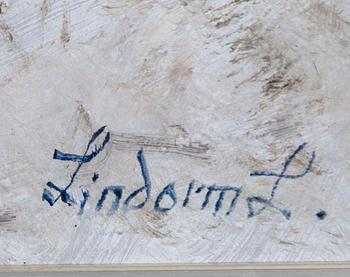 Lindorm L.